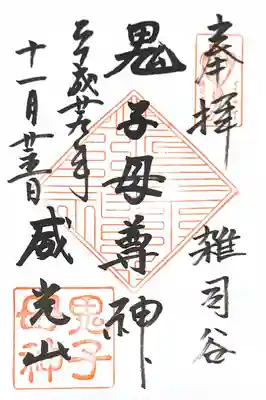 奉拝 雑司谷
鬼子母尊神
平成 年
十一月 日
威光山
鬼子
母神